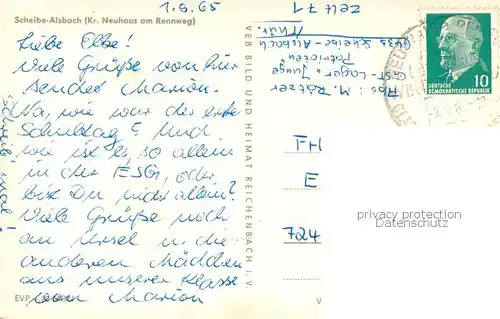 Scheibe-Alsbach (Kr. Neuhaus am Rennweg)
1.9.65
Liebe Elke!
Viele Grüße von hier
sendet Marion.
Na, wie war der erste
Schultag? Und
wie ist es, so allein
in der ESG, oder
bist Du nicht allein?
Viele Grüße noch
an Ursel u. die
anderen Mädchen
aus unserer Klasse
von Marion
Schreib mal!
EVP
VEB BILD UND HEIMAT REICHENBACH i. V.
V
Zelt 71
Abs: M. Rätzer
GST-Lager "Junge
Patrioten"
6435 Scheibe-Alsbach
Thür.
DEUTSCHE
DEMOKRATISCHE REPUBLIK
10
FH
E
724
privacy protection
Datenschutz